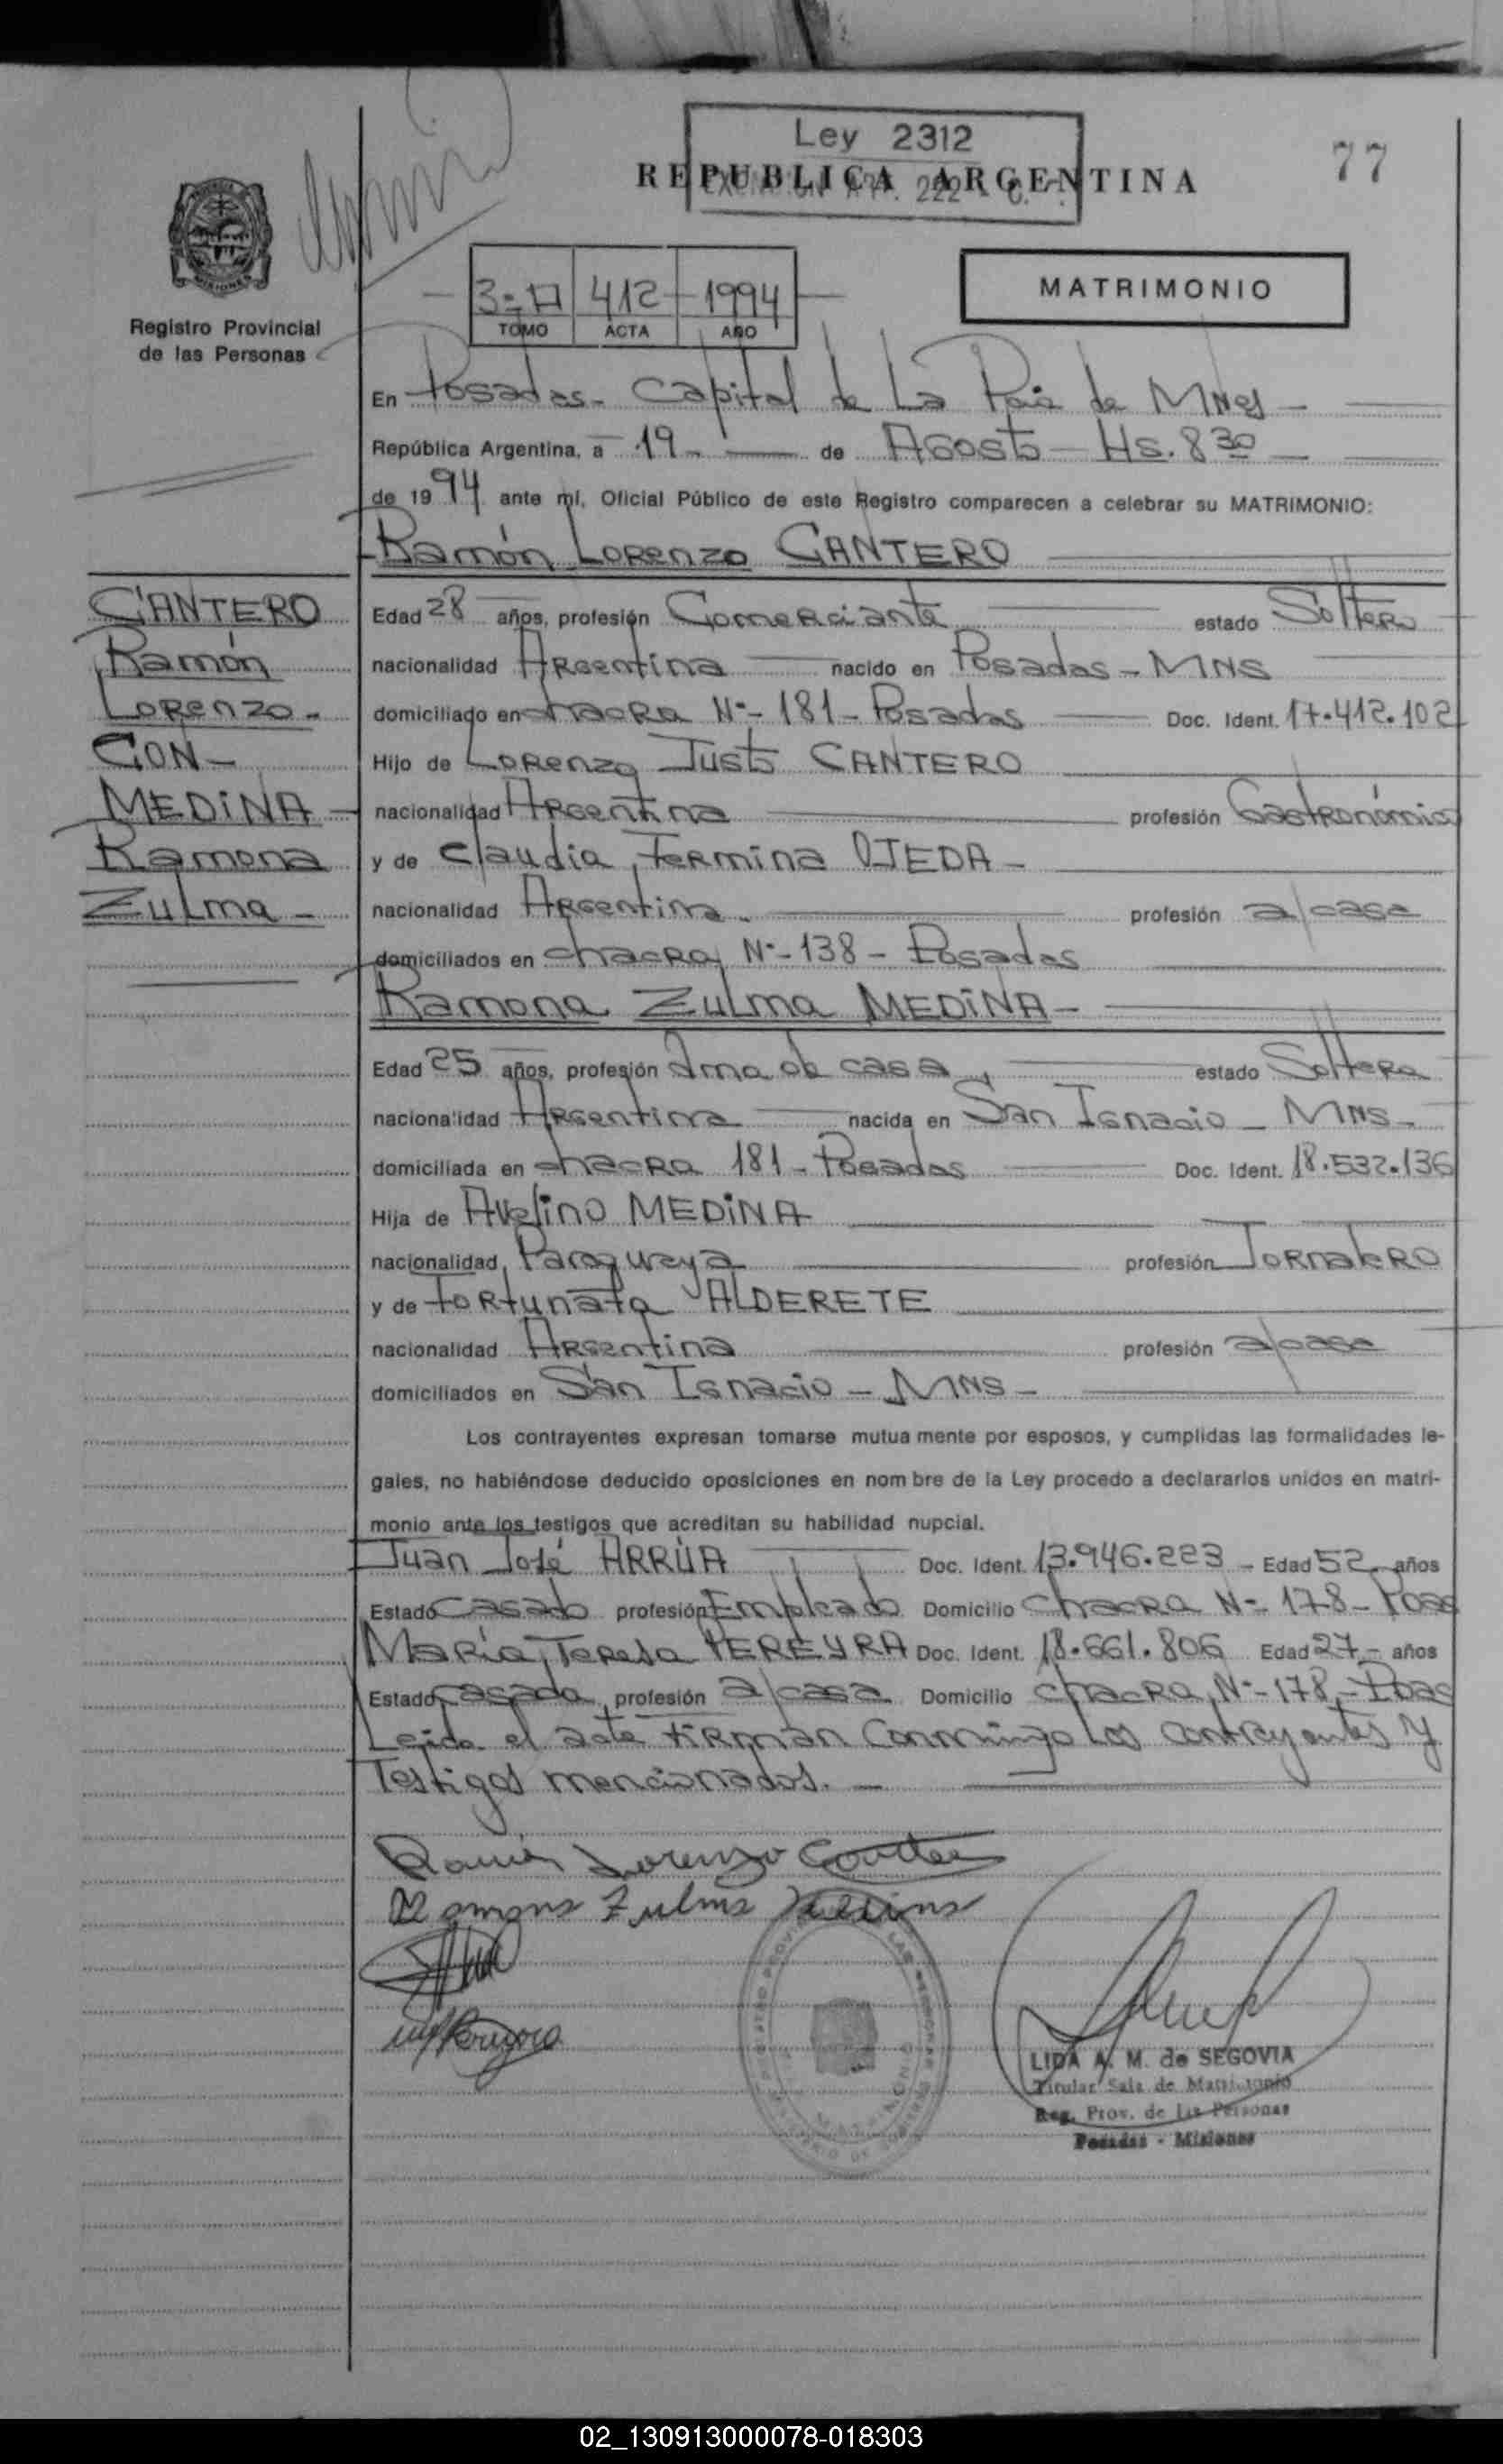 Ley 2312
77
REPUBLICA ARGENTINA
222
3-II 412 1994
TOMO ACTA AÑO
MATRIMONIO
Registro Provincial
de las Personas
En Posadas - Capital de La Pcia de MNes -
República Argentina, a 19 - de Agosto - Hs. 8 30 -
de 1994 ante mí, Oficial Público de este Registro comparecen a celebrar su MATRIMONIO:
Ramón Lorenzo CANTERO
CANTERO
Ramón
Lorenzo -
CON -
MEDINA -
Ramona
Zulma -
Edad 28 años, profesión Comerciante estado Soltero
nacionalidad Argentina nacido en Posadas - MNS
domiciliado en chacra Nº - 181 - Posadas Doc. Ident. 17.412.102
Hijo de Lorenzo Justo CANTERO
nacionalidad Argentina profesión Gastronómico
y de Claudia Fermina OJEDA -
nacionalidad Argentina - profesión a/casa
domiciliados en chacra Nº - 138 - Posadas
Ramona Zulma MEDINA -
Edad 25 años, profesión Ama de casa estado Soltera
nacionalidad Argentina nacida en San Ignacio - MNS -
domiciliada en chacra 181 - Posadas Doc. Ident. 18.532.136
Hija de Avelino MEDINA
nacionalidad Paraguaya profesión Jornalero
y de Fortunata ALDERETE
nacionalidad Argentina profesión a/casa
domiciliados en San Ignacio - MNS -
Los contrayentes expresan tomarse mutua mente por esposos, y cumplidas las formalidades le-
gales, no habiéndose deducido oposiciones en nom bre de la Ley procedo a declararlos unidos en matri-
monio ante los testigos que acreditan su habilidad nupcial.
Juan José ARRÚA Doc. Ident. 13.946.223 - Edad 52 años
Estado Casado profesión Empleado Domicilio Chacra Nº - 178 - Poas
María Teresa PEREYRA Doc. Ident. 18.661.806 Edad 27 - años
Estado casada profesión a/casa Domicilio chacra Nº - 178 - Poas
Leida el acta firman Conmingo los contrayentes y
Testigos mencionados. -
Ramón Lorenzo Cantero
Ramona Zulma Medina
LIDA A. M. de SEGOVIA
Titular Sala de Matrimonio
Reg. Prov. de las Personas
Posadas - Misiones
02_130913000078-018303